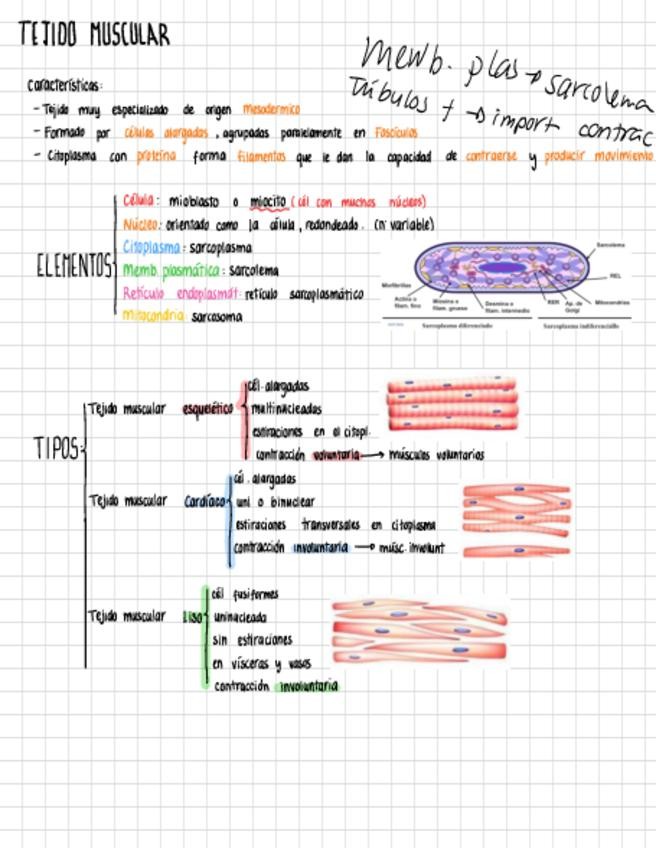 TEJIDO MUSCULAR
Memb. plas → sarcolema
Túbulos t → import contrac
Características:
- Tejido muy especializado de origen mesodermico
- Formado por células alargadas, agrupadas paralelamente en Fascículos
- Citoplasma con proteína forma filamentos que le dan la capacidad de contraerse y producir movimiento.
ELEMENTOS
Célula: mioblasto o miocito (cél con muchos núcleos)
Núcleo: orientado como la célula, redondeado. (nº variable)
Citoplasma: sarcoplasma
Memb. plasmática: sarcolema
Retículo endoplasmát: retículo sarcoplasmático
Mitocondria: sarcosoma
Sarcolema
REL
Miofibrillas
Actina o filam. fino
Miosina o filam. grueso
Desmina o filam. intermedio
RER
Ap. de Golgi
Mitocondrias
Sarcoplasma diferenciado
Sarcoplasma indiferenciado
TIPOS:
Tejido muscular esquelético
cél. alargadas
multinucleadas
estiraciones en el citopl.
contracción voluntaria → músculos voluntarios
Tejido muscular Cardíaco
cél. alargadas
uni o binuclear
estiraciones transversales en citoplasma
contracción involuntaria → músc. involunt
Tejido muscular liso
cél fusiformes
uninucleada
sin estiraciones
en vísceras y vasos
contracción involuntaria